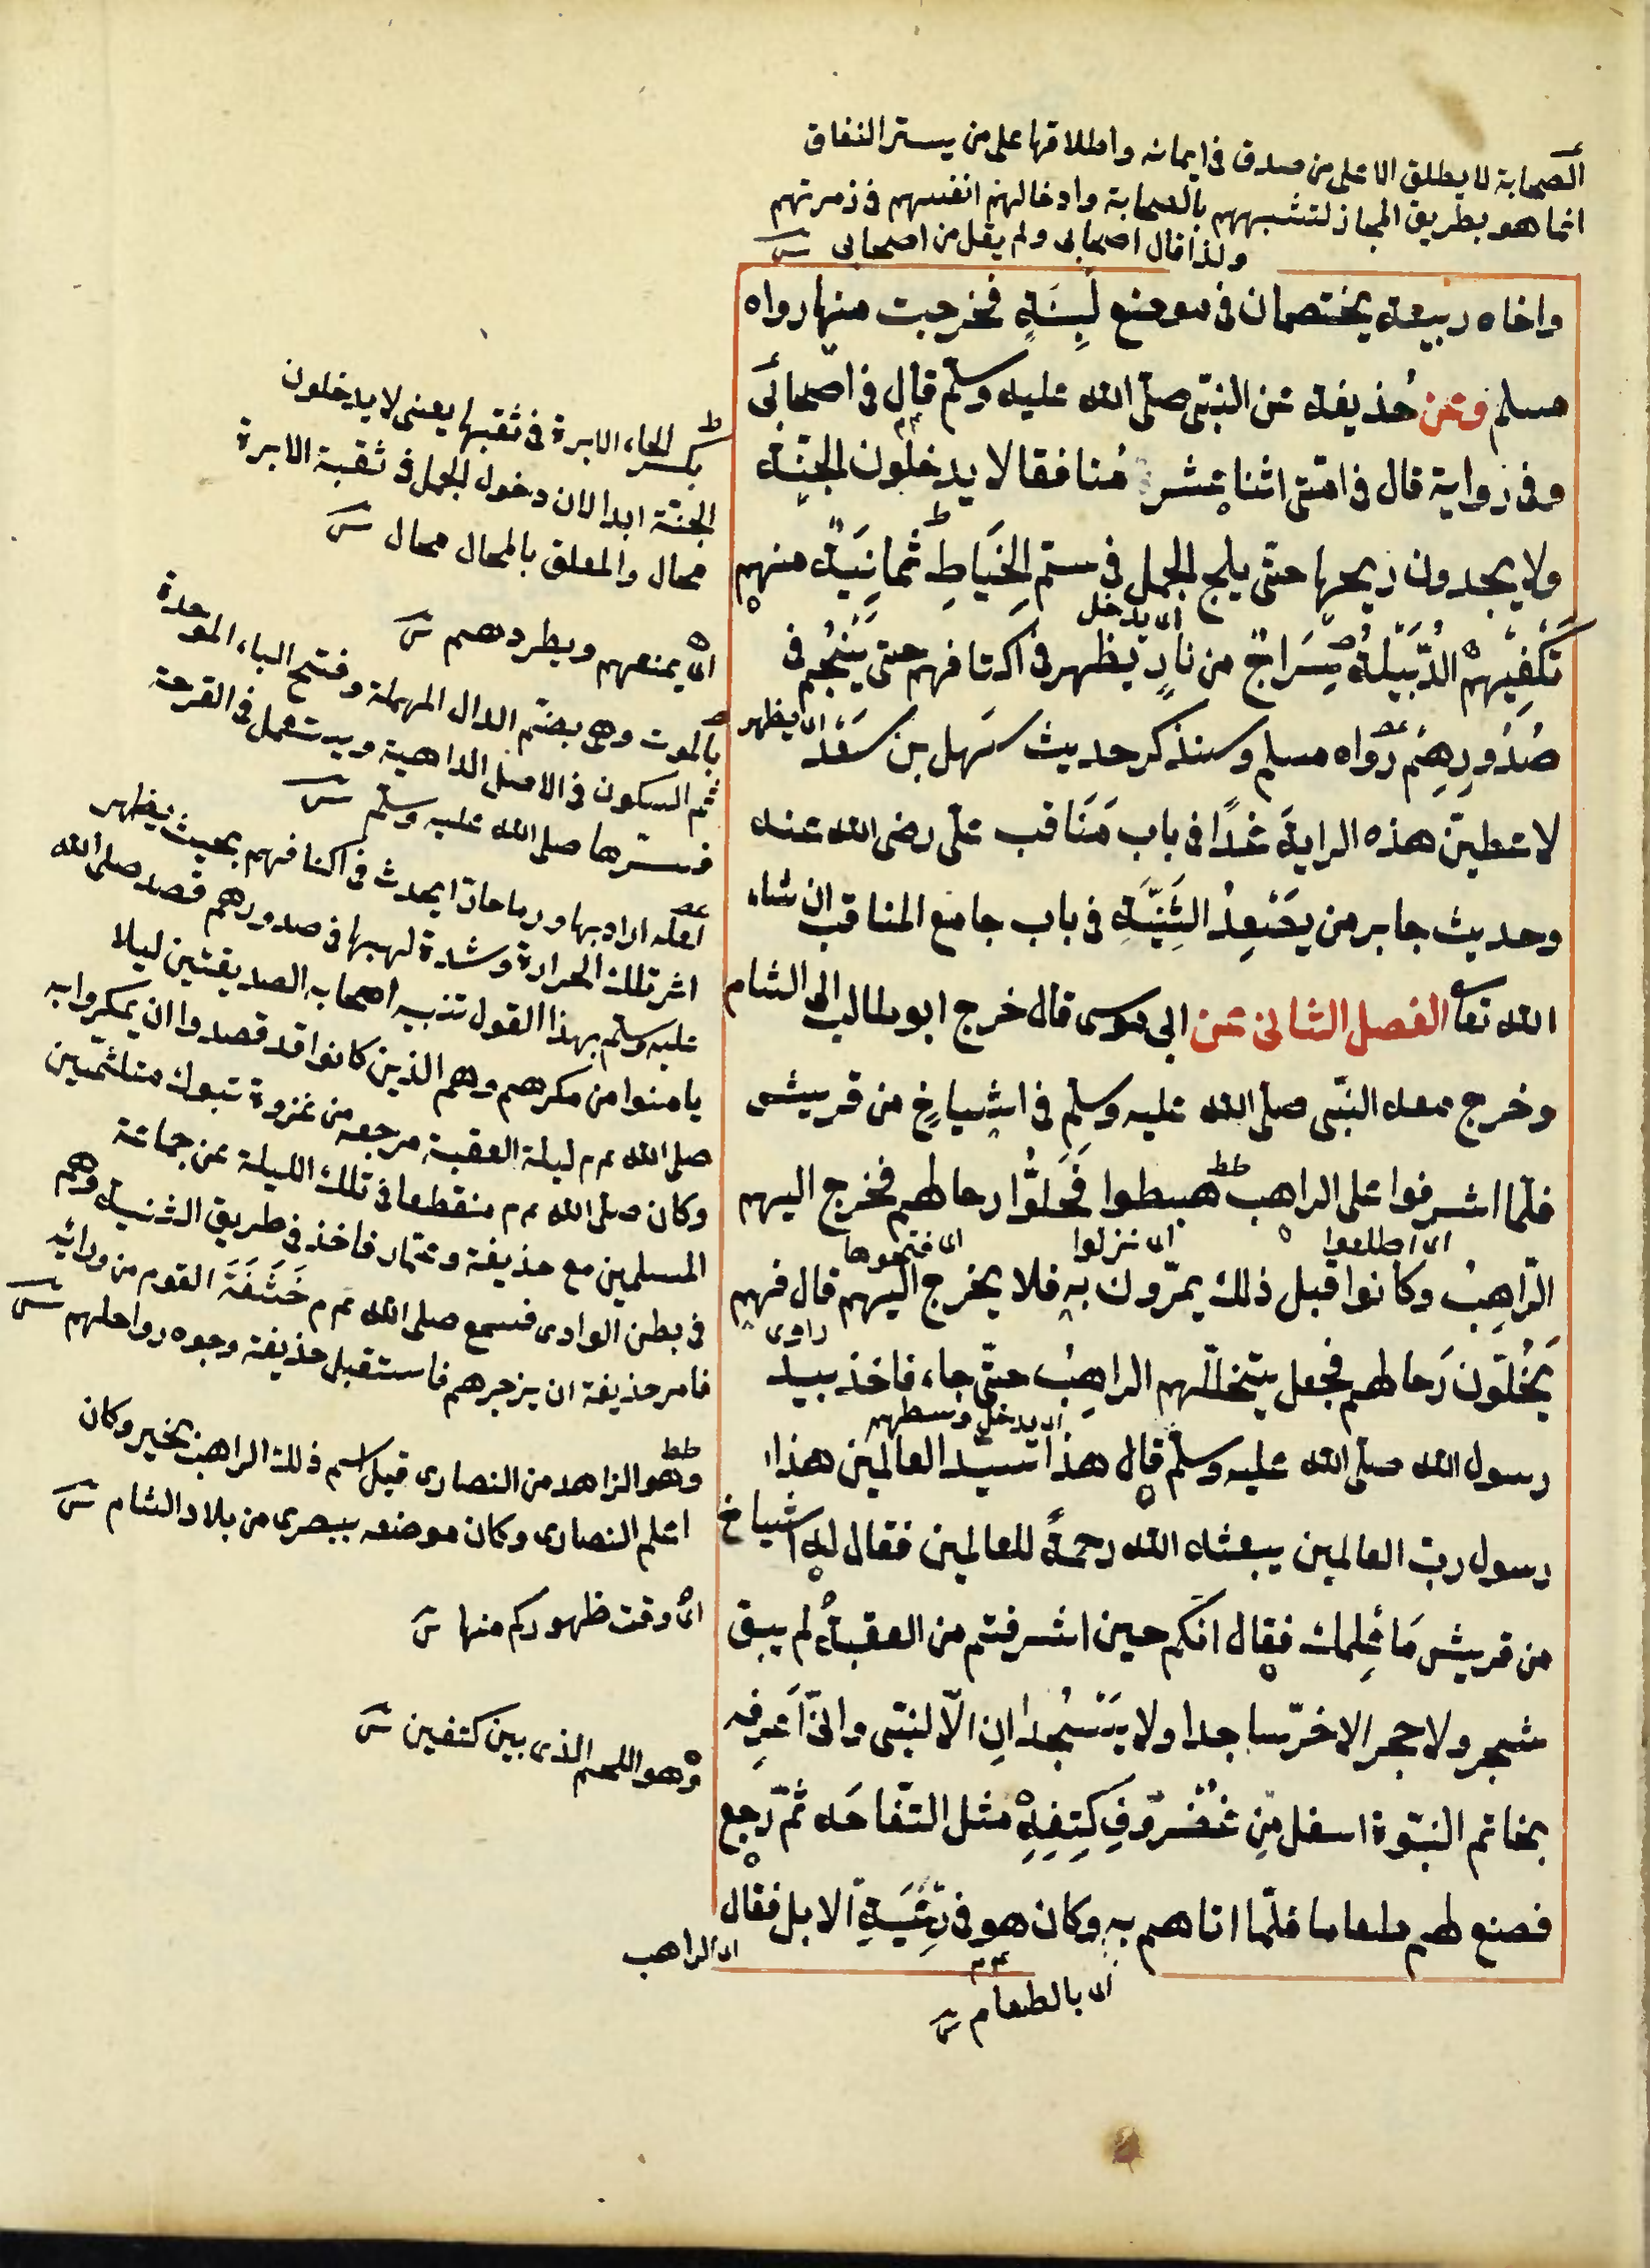 الصحابة لا يطلق الا على من صدق فى ايمانه واطلاقها على من يستر النفاق
انما هو بطريق المجاز لتشبههم بالصحابة وادخالهم انفسهم فى زمرتهم
ولذا قال اصحابى ولم يقل من اصحابى
واخاه ربيعة يختصمان فى موضع لَبِنَةٍ فخرجت منها رواه
مسلم وعن حُذيفة عن النبّى صلّى الله عليه وسلّم قال فى اصحابى
وفى رواية قال فى امّتى اثنا عشر مُنافقا لا يدخلون الجنّة
ولا يجدون ريحها حتّى يلج الجمل فى سَمّ الخِيَاطِ ثمانِيَةٌ منهم
اى يدخل
تَكْفِيهِمُ الدُّبَيْلَةُ سِرَاجٌ من نارٍ يظهر فى اكتافهم حتى يَنْجُمَ فى
اى يظهر
صُدُورِهِمْ رواه مسلم وسنذكر حديث سَهل بن سَعْد
لاعطينّ هذه الراية غدًا فى باب مَنَاقب علّى رضى الله عنه
وحديث جابر من يَصْعَدُ الثَنِيَّةَ فى باب جامع المناقب ان شاء
الله تعا الفصل الثانى عن ابى موسى قال خرج ابو طالب الى الشام
وخرج معه النبّى صلى الله عليه وسلّم فى اشياخٍ من قريش
فلمّا اشرفوا على الراهب هبطوا فَحَلُّوا رحالهم فخرج اليهم
اى اطلعوا اى نزلوا اى فتحوها
الرّاهِبُ وكانوا قبل ذلك يمرّون به فلا يخرج اليهم قال فهم
راوى
يَحُلّون رَحالهم فجعل يتخلّلهم الراهِبُ حتّى جاء فاخذ بيد
اى يدخل وسطهم
رسول الله صلّى الله عليه وسلّم قال هذا سيّد العالمين هذا
رسول ربّ العالمين يبعثه الله رحمةً للعالمين فقال له اشياخ
من قريش مَا عِلمك فقال انّكم حين اشرفتم من العقبة لم يبق
شجر ولا حجر الا خرّ ساجدا ولا يَسْجُدانِ الّا لنبّى وانّى اَعرِفه
بخاتم النبّوة اسفل مِن غُضْرُوفِ كَتِفِهِ مثل التفّاحَة ثمّ رجع
فصنع لهم طعاما فلمّا اتاهم به وكان هو فى رِعْيَةِ الابل فقال
اى الراهب
اى بالطعام
بكسر الخاء الابرة فى ثقبها يعنى لا يدخلون
الجنّة ابدا لان دخول الجمل فى ثقبة الابرة
محال والمعلق بالمحال محال
اى يمنعهم ويطردهم
بالموت وهى بضمّ الدال المهملة وفتح الباء الموحدة
ثم السكون فى الاصل الداهية ويستعمل فى القرحة
فسّرها صلى الله عليه وسلّم
لعلّه اراد بها ورما حارّا يحدث فى اكتافهم بحيث يظهر
اثر تلك الحرارة وشدة لهبها فى صدورهم قصد صلى الله
عليه وسلم بهذا القول تنبيه اصحابه الصديقين ليلا
يامنوا من مكرهم وهم الذين كانوا قد قصدوا ان يمكروا به
صلى الله عم ليلة العقبة مرجعه من غزوة تبوك متلثمين
وكان صلى الله عم منقطعا فى تلك الليلة عن جماعة
المسلمين مع حذيفة وعمّار فاخذ فى طريق الثنية وهم
فى بطن الوادى فسمع صلى الله عم خَشْفَةَ القوم من ورائه
فامر حذيفة ان يزجرهم فاستقبل حذيفة وجوه رواحلهم
وهو الزاهد من النصارى قيل اسم ذلك الراهب بحير وكان
اعلم النصارى وكان موضعه ببصرى من بلاد الشام
اى وقت ظهوركم منها
وهو اللحم الذى بين كتفين